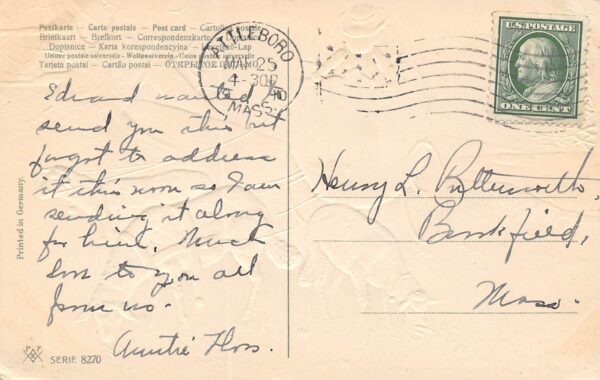 Postkarte — Carte postale — Post card — Cartolina postale
Briefkaart — Brefkort — Correspondenzkarte — Dopisnice
Dopisnice — Karta korespondencyjna — Levelező-Lap
Union postale universelle — Weltpostverein — Union postale universelle
Tarjeta postal — Cartão postal — ОТКРЫТОЕ ПИСЬМО
ATTLEBORO
MAR 25
4-30P
MASS.
U.S. POSTAGE
ONE CENT
Edward wanted to
send you this but
forgot to address
it this noon so I am
sending it along
for him. Much
love to you all
from us.
Auntie Floss.
Henry L. Butterworth,
Brookfield,
Mass.
Printed in Germany.
SERIE 8270